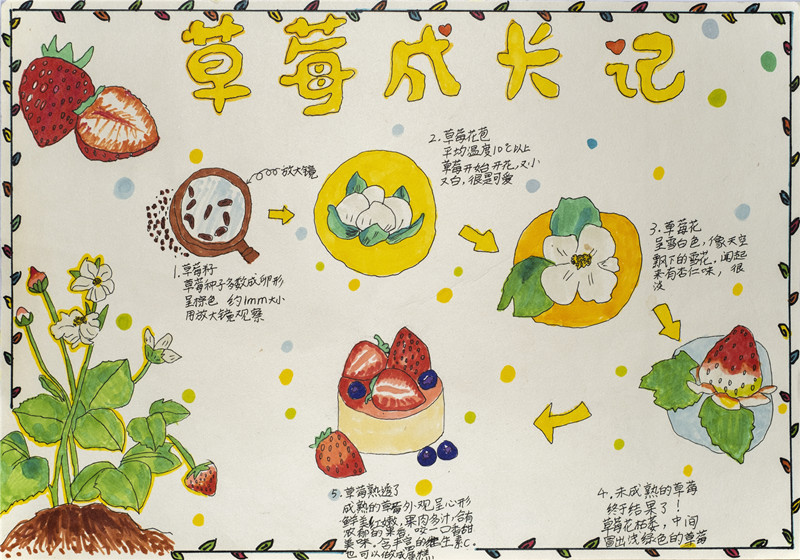 草莓成长记
放大镜
1.草莓籽
草莓种子多数成卵形
呈棕色 约1mm大小
用放大镜观察
2.草莓花苞
平均温度10℃以上
草莓开始开花,又小
又白,很是可爱
3.草莓花
呈雪白色,像天空
飘下的雪花,闻起
来有杏仁味,很
淡
4.未成熟的草莓
终于结果了!
草莓花枯萎,中间
冒出浅绿色的草莓
5.草莓熟透了
成熟的草莓外观呈心形
鲜美红嫩,果肉多汁,含有
浓郁的果香,咬一口香甜
美味,含丰富的维生素C.
也可以做成蛋糕